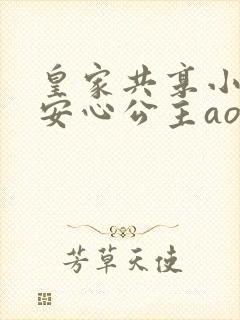 皇家共享小
安心公主ao
芳草天使